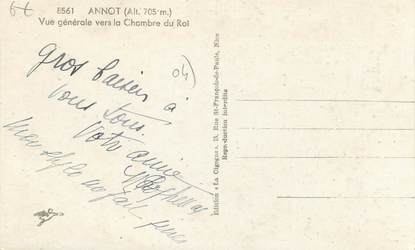 6€
8561 ANNOT (Alt. 705 m.)
Vue générale vers la Chambre du Roi
(04)
gros baisers à
vous tous.
Votre amie
Edition « La Cigogne », 13, Rue St-François-de-Paule, Nice
Reproduction interdite